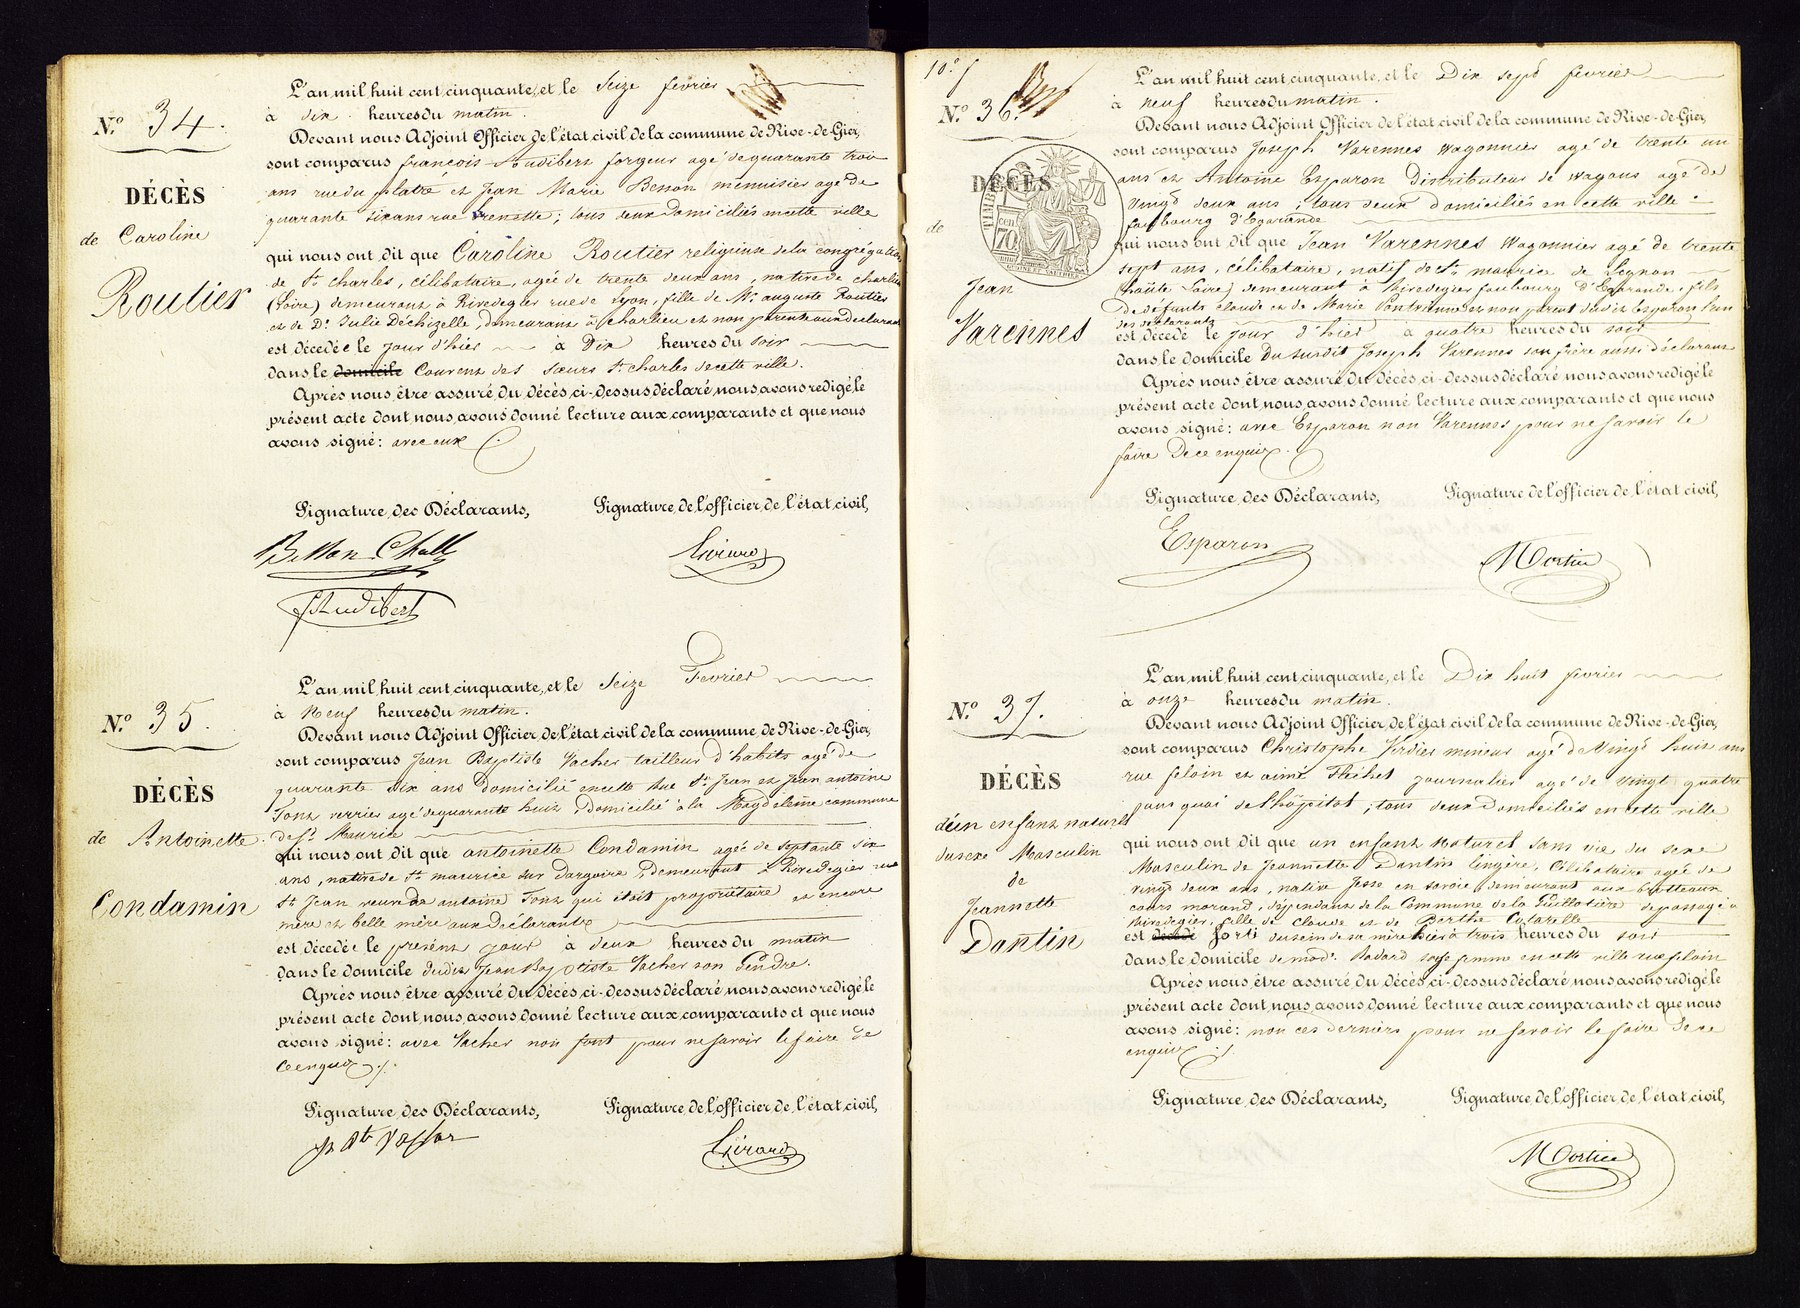 N.º 34.
DÉCÈS
de Caroline
Routier
L'an mil huit cent cinquante, et le Seize fevrier
à dix heures du matin.
Devant nous Adjoint Officier de l'état civil de la commune de Rive-de-Gier,
sont comparus françois Audibert forgeur agé de quarante trois
ans rue du platre et Jean Marie Besson menuisier age de
quarante six ans rue Grenette; tous deux domiciliés en cette ville
qui nous ont dit que Caroline Routier religieuse de la congrégation
de St charles, célibataire, agée de trente deux ans, native de charlieu
(Loire) demeurant à Rivedegier rue de Lyon, fille de Mr. auguste Routier
et de De. Julie Déchizelle, demeurant à charlieu et non parente aux declarants
est décedée le jour d'hier à Dix heures du soir
dans le domicile Couvent des sœurs St charles de cette ville.
Après nous être assuré du décès ci-dessus déclaré nous avons redigé le
présent acte dont nous avons donné lecture aux comparants et que nous
avons signé: avec eux
Signature des Déclarants, Signature de l'officier de l'état civil,
Besson
Girard
Audibert
N.º 35.
DÉCÈS
de Antoinette
Condamin
L'an mil huit cent cinquante, et le Seize Fevrier
à Neuf heures du matin.
Devant nous Adjoint Officier de l'état civil de la commune de Rive-de-Gier,
sont comparus Jean Baptiste Vacher tailleur d'habits agé de
quarante six ans domicilié en cette Rue St Jean et Jean antoine
Font verrier agé de quarante huit, domicilié à la Magdeleine commune
de St Maurice
qui nous ont dit que antoinette Condamin agée de septante six
ans, native de St maurice sur dargoire, demeurant à Rivedegier rue
St Jean veuve de antoine Font qui était propriétaire et encore
mère et belle mère aux déclarants
est décedée le présent jour à deux heures du matin
dans le domicile dudit Jean Baptiste Vacher son Gendre.
Après nous être assuré du décès ci-dessus déclaré nous avons redigé le
présent acte dont nous avons donné lecture aux comparants et que nous
avons signé: avec Vacher non font pour ne savoir le faire de
ce enquis
Signature des Déclarants, Signature de l'officier de l'état civil,
Girard
10.e f
N.º 36.
DÉCÈS
TIMBRE
70
de
Jean
Varennes
L'an mil huit cent cinquante, et le Dix sept fevrier
à neuf heures du matin.
Devant nous Adjoint Officier de l'état civil de la commune de Rive-de-Gier,
sont comparus Joseph Varennes wagonnier agé de trente un
ans et Antoine Esparon distributeur de wagons agé de
vingt deux ans; tous deux domiciliés en cette ville
faubourg d'Egarande
qui nous ont dit que Jean Varennes Wagonnier agé de trente
sept ans, célibataire, natif de St maurice de Lignon
(haute Loire) demeurant à Rivedegier faubourg d'Egarande, fils
de défunts claude et de Marie et non parent dudit Esparon l'un
des déclarants
est décedé le jour d'hier à quatre heures du soir
dans le domicile Du susdit Joseph Varennes son frère aussi déclarant
Après nous être assuré du décès ci-dessus déclaré nous avons redigé le
présent acte dont nous avons donné lecture aux comparants et que nous
avons signé: avec Esparon non Varennes pour ne savoir le
faire de ce enquis.
Signature des Déclarants, Signature de l'officier de l'état civil,
Esparon
Mortier
N.º 37.
DÉCÈS
d'un enfant naturel
du sexe Masculin
de
Jeannette
Dantin
L'an mil huit cent cinquante, et le Dix huit fevrier
à onze heures du matin.
Devant nous Adjoint Officier de l'état civil de la commune de Rive-de-Gier,
sont comparus Christophe Verdier mineur agé de Vingt huit ans
rue feloin et aimé journalier agé de vingt quatre
quai de l'hôpital; tous deux domiciliés en cette ville
qui nous ont dit que un enfant Naturel Sans vie du sexe
Masculin de Jeannette Dantin lingère, Célibataire agée de
vingt deux ans, native en savoie demeurant aux brotteaux
cours morand, dépendant de la Commune de la Guillotière de passage à
Rivedegier, fille de Claude et de Berthe
est décedé sorti du sein de sa mère hier à trois heures du soir
dans le domicile de mad. Badard sage femme en cette ville rue feloin
Après nous être assuré du décès ci-dessus déclaré nous avons redigé le
présent acte dont nous avons donné lecture aux comparants et que nous
avons signé: non ces derniers pour ne savoir le faire de ce
enquis
Signature des Déclarants, Signature de l'officier de l'état civil,
Mortier